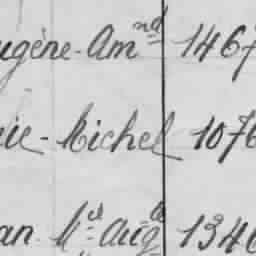 ugène-Amnd 146
cie-Michel 1076
an. Mel Augte 1346